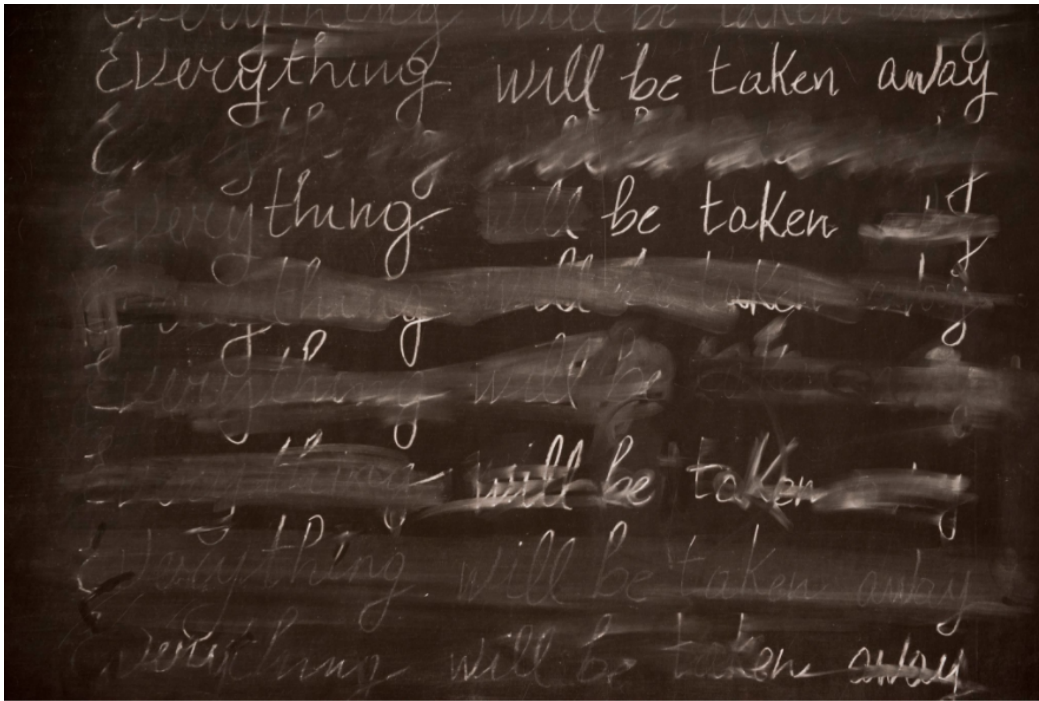 Everything will be taken away
Everything will be taken away
Everything will be
Everything will be taken
Everything will be taken away
Everything will be
will be taken
Everything will be taken away
Everything will be taken away